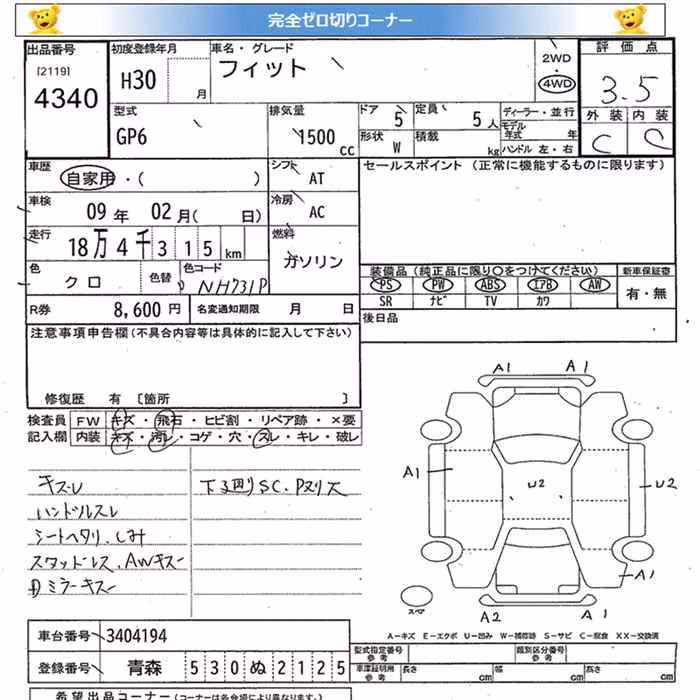 完全ゼロ切りコーナー
出品番号 初度登録年月 車名・グレード 2WD 評価点
[2119] H30 月 フィット 4WD 3.5
4340
型式 排気量 ドア 定員 ディーラー・並行 外装 内装
GP6 1500 CC 5 5人 モデル年式 年 C C
形状 積載 W kg ハンドル 左・右
車歴 シフト セールスポイント (正常に機能するものに限ります)
自家用・( ) AT
車検 冷房
09年 02月( 日) AC
走行 燃料
18万4千315km ガソリン
色 色替 色コード 装備品 (純正品に限り○をつけてください) 新車保証書
クロ NH731P PS PW ABS エアB AW 有・無
SR ナビ TV カワ
R券 8,600円 名変通知期限 月 日 後日品
注意事項申告欄 (不具合内容等は具体的に記入して下さい)
修復歴 有 [箇所 ]
検査員 FW キズ・飛石・ヒビ割・リペア跡・×要
記入欄 内装 キズ・汚レ・コゲ・穴・スレ・キレ・破レ
A1 A1
A1 U2 U2
A1
A2 A1
キズレ 下廻りSC.Pヌリス
ハンドルスレ
シートヘタリ.しみ
スタッドレス.AWキズー
ミラーキズー
スペア
A－キズ E－エクボ U－凹み W－補修跡 S－サビ C－腐食 XX－交換済
車台番号 3404194 型式指定番号 参考 類別区分番号 参考
登録番号 青森 530ぬ2125 車庫証明用 参考 長さ cm 幅 cm 高さ cm
希望出品コーナー (コーナーは各会場により異なります。)